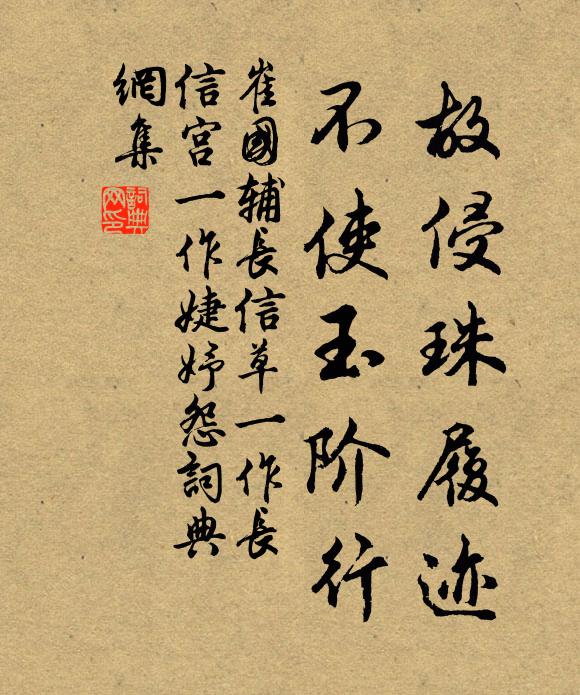 故侵珠履迹
不使玉阶行
崔國辅長信草一作長
信宫一作婕妤怨詞典
網集
詞典
网印